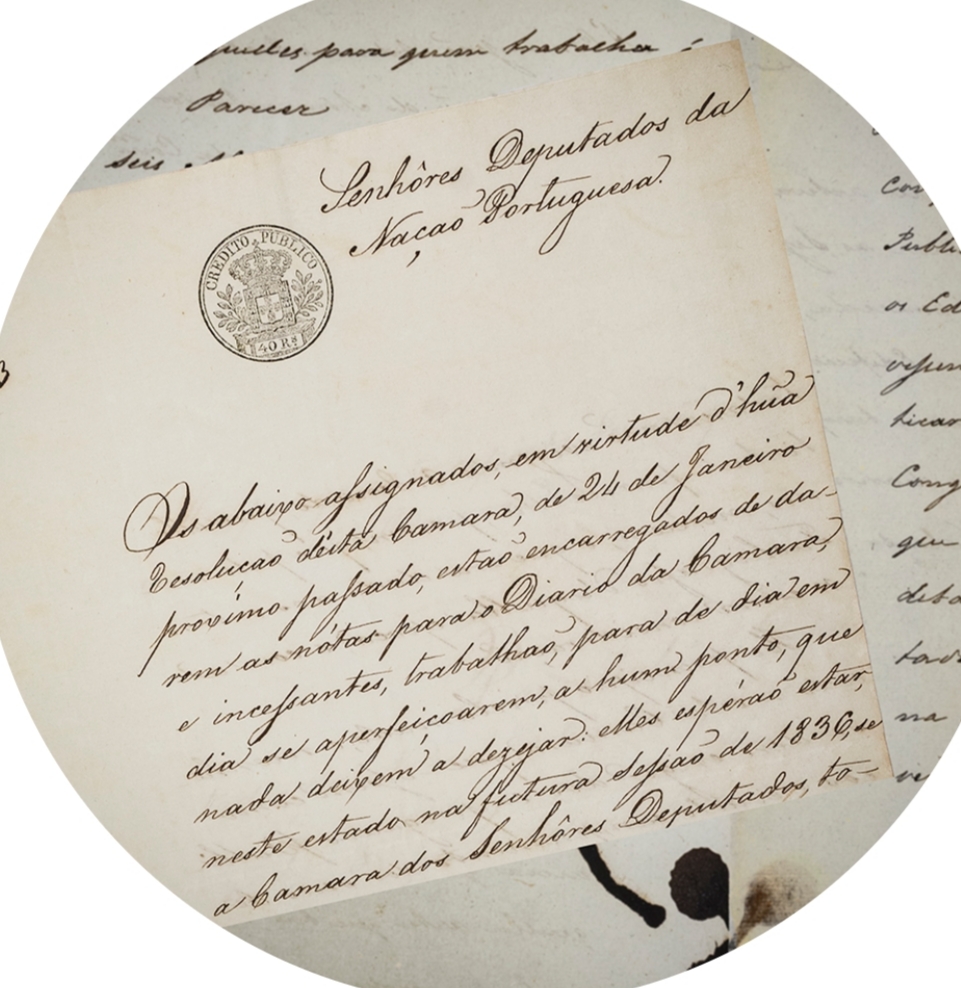 para quem trabalha é
Parecer
seis
Senhôres Deputados da
Nação Portuguesa.
CREDITO PUBLICO
40 Rs
Os abaixo assignados, em virtude d'hũa
Resolução désta Camara, de 24 de Janeiro
proximo passado, estaõ encarregados de da-
rem as nótas para o Diario da Camara,
e incessantes, trabalhaõ, para de dia em
dia se aperfeiçoarem, a hum ponto, que
nada deixem a dezejar: Elles espéraõ estar,
neste estado na futura Sessaõ de 1836, se
a Camara dos Senhôres Deputados, to-
3
Publi
os Ed
ticar
Cong
que
deba
na